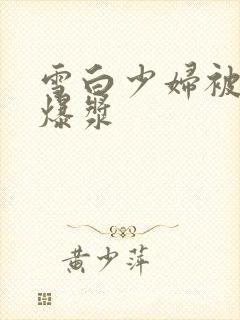 雪白少婦被
爆漿
黄少萍